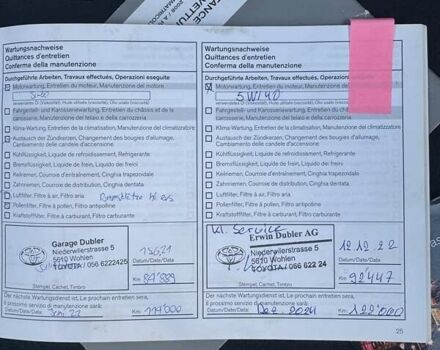 Wartungsnachweise
Quittances d'entretien
Conferma della manutenzione
Durchgeführte Arbeiten, Travaux effectués, Operazioni eseguite
Motorwartung, Entretien du moteur, Manutenzione del motore
Fahrgestell- und Karosseriewartung, Entretien du châssis et de la
carrosserie, Manutenzione del telaio e della carrozzeria
Klima-Wartung, Entretien de la climatisation, Manutenzione del climatizzatore
Austausch der Zündkerzen, Changement des bougies d'allumage,
Cambiamento delle candele d'accensione
Kühlflüssigkeit, Liquide de refroidissement, Refrigerante
Bremsflüssigkeit, Liquide de frein, Liquido dei freni
Keilriemen, Courroie d'entraînement, Cinghia trapezoidale
Zahnriemen, Courroie de distribution, Cinghia dentata
Luftfilter, Filtre à air, Filtro aria
Pollenfilter, Filtre à pollen, Filtro antipolline
Kraftstofffilter, Filtre à carburant, Filtro carburante
Garage Dubler
Niederwilerstrasse 5
5610 Wohlen
TOYOTA / 056 6222425
Datum/Date/Data:
Km: 84'889
Stempel, Cachet, Timbro
Der nächste Wartungsdienst ist, Le prochain entretien sera,
Il prossimo servizio di manutenzione sarà:
Datum/Date/Data: Juni 23 Km:
Wartungsnachweise
Quittances d'entretien
Conferma della manutenzione
Durchgeführte Arbeiten, Travaux effectués, Operazioni
Motorwartung, Entretien du moteur, Manutenzione
5W40
Fahrgestell- und Karosseriewartung, Entretien du châssis et de la
carrosserie, Manutenzione del telaio e della carrozzeria
Klima-Wartung, Entretien de la climatisation, Manutenzione del climatizzatore
Austausch der Zündkerzen, Changement des bougies d'allumage,
Cambiamento delle candele d'accensione
Kühlflüssigkeit, Liquide de refroidissement, Refrigerante
Bremsflüssigkeit, Liquide de frein, Liquido dei freni
Keilriemen, Courroie d'entraînement, Cinghia trapezoidale
Zahnriemen, Courroie de distribution, Cinghia dentata
Luftfilter, Filtre à air, Filtro aria
Pollenfilter, Filtre à pollen, Filtro antipolline
Kraftstofffilter, Filtre à carburant, Filtro carburante
kl. Service
Erwin Dubler AG
Niederwilerstrasse 5
5610 Wohlen
TOYOTA / 056 622 24
12.12.22
Datum/Date/Data:
Km: 92'447
Stempel, Cachet, Timbro
Der nächste Wartungsdienst ist, Le prochain entretien sera,
Il prossimo servizio di manutenzione sarà:
Datum/Date/Data: Dez. 2024 Km: 122'000
25